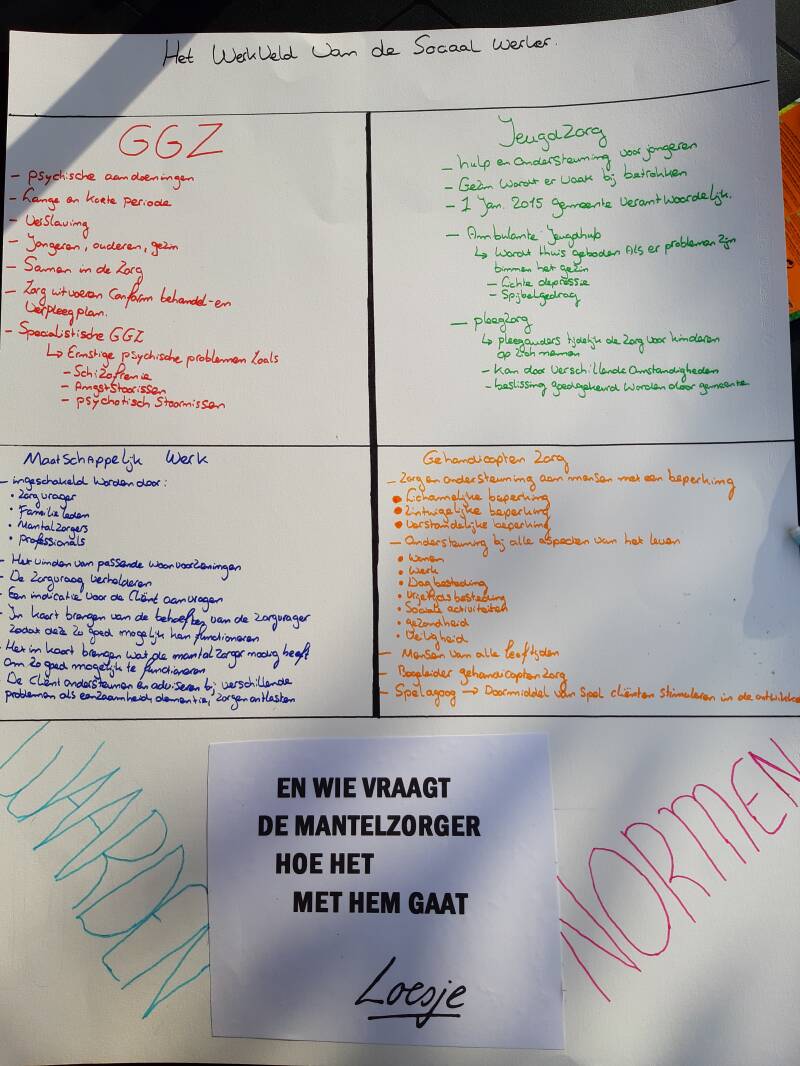 Het Werkveld van de Sociaal Werker.
GGZ
- psychische aandoeningen
- Lange en korte periode
- verslaving
- Jongeren, ouderen, gezin
- Samen in de zorg
- Zorg uitvoeren conform behandel- en
verpleegplan.
- Specialistische GGZ
↳ Ernstige psychische problemen zoals
- Schizofrenie
- Angststoornissen
- psychotisch stoornissen
Jeugdzorg
- hulp en ondersteuning voor jongeren
- Gezin wordt er vaak bij betrokken
- 1 Jan. 2015 gemeente verantwoordelijk.
- Ambulante Jeugdhulp
↳ Wordt thuis geboden als er problemen zijn
binnen het gezin
- Lichte depressie
- Spijbelgedrag
- pleegzorg
↳ pleegouders tijdelijk de zorg voor kinderen
op zich nemen
- Kan door verschillende omstandigheden
- beslissing goedgekeurd worden door gemeente
Maatschappelijk Werk
- ingeschakeld worden door:
• Zorgvrager
• Familie leden
• Mantelzorgers
• professionals
- Het vinden van passende woonvoorzieningen
- De Zorgvraag verhelderen
- Een indicatie voor de Cliënt aanvragen
- In kaart brengen van de behoeften van de zorgvrager
zodat deze zo goed mogelijk kan functioneren
- Het in kaart brengen wat de mantelzorger nodig heeft
om zo goed mogelijk te functioneren
- De Cliënt ondersteunen en adviseren bij verschillende
problemen als eenzaamheid, dementie, zorgen ontlasten
Gehandicapten Zorg
- Zorg en ondersteuning aan mensen met een beperking
• Lichamelijke beperking
• Zintuigelijke beperking
• Verstandelijke beperking
- Ondersteuning bij alle aspecten van het leven
• Wonen
• Werk
• Dagbesteding
• Vrijetijdsbesteding
• Sociale activiteiten
• gezondheid
• Veiligheid
- Mensen van alle leeftijden
- Begeleider gehandicapten zorg
- Spelagoog → Doormiddel van spel cliënten stimuleren in de
WAARDEN
EN WIE VRAAGT
DE MANTELZORGER
HOE HET
MET HEM GAAT
Loesje
NORMEN